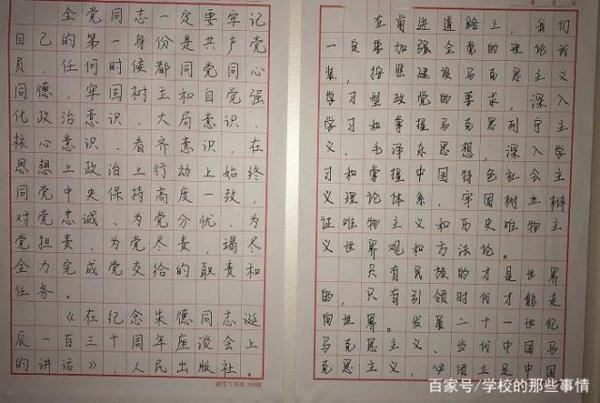 全党同志一定要牢记
自己的第一身份是共产党
员，任何时候都同党同心
同德，牢固树立和自觉强
化政治意识、大局意识、
核心意识、看齐意识，在
思想上政治上行动上始终
同党中央保持高度一致，
对党忠诚、为党分忧、为
党担责、为党尽责，竭尽
全力完成党交给的职责和
任务。
《在纪念朱德同志诞
辰一百三十周年座谈会上
的讲话》，人民出版社。
在前进道路上，我们
一定要加强全党的理论武
装，按照建设马克思主义
学习型政党的要求，深入
学习和掌握马克思列宁主
义、毛泽东思想，深入学
习和掌握中国特色社会主
义理论体系，牢固树立辩
证唯物主义和历史唯物主
义世界观和方法论。
只有民族的才是世界
的，只有引领时代才能走
向世界。发展二十一世纪
马克思主义、当代中国马
克思主义，必须立足中国
百家号/学校的那些事情